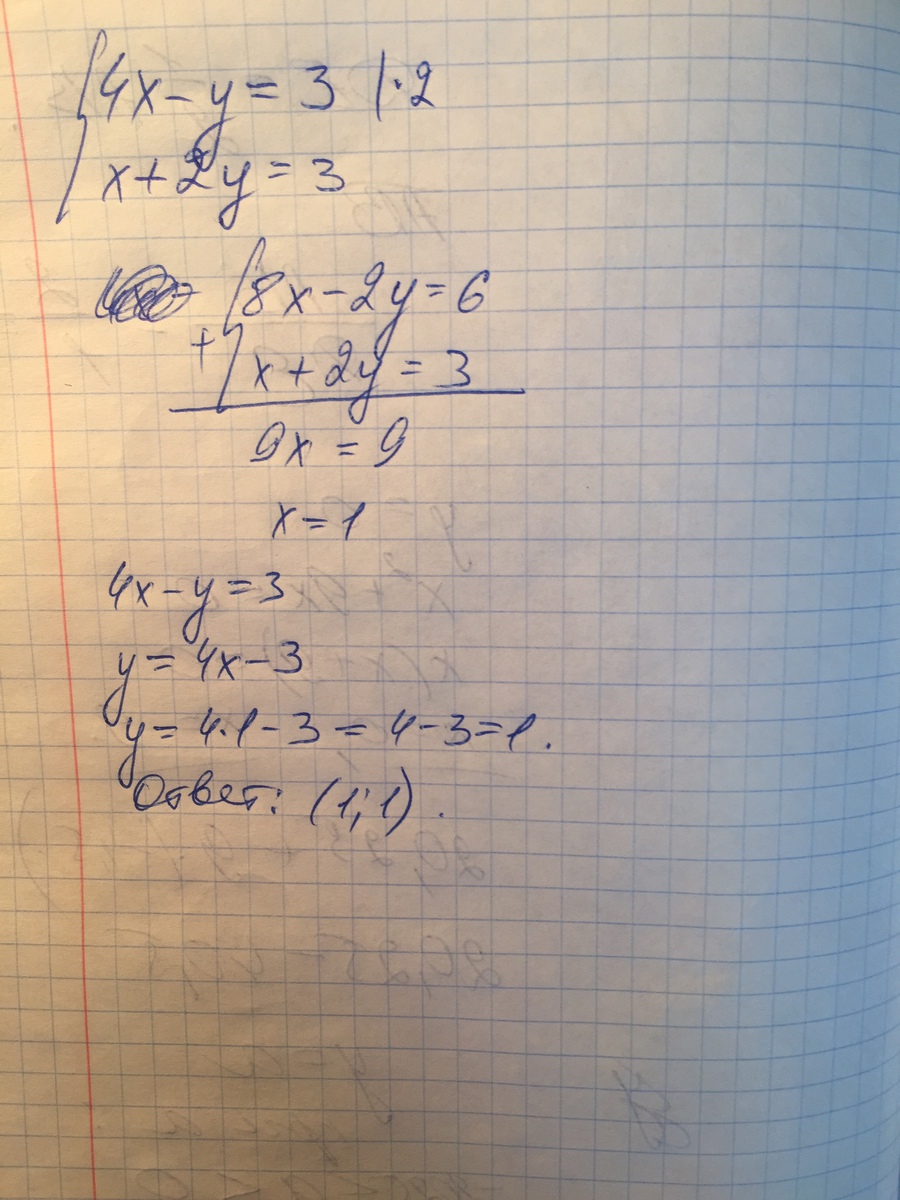 4x - y = 3 | · 2
x + 2y = 3
8x - 2y = 6
+
x + 2y = 3
9x = 9
x = 1
4x - y = 3
y = 4x - 3
y = 4·1 - 3 = 4 - 3 = 1.
Ответ: (1; 1).